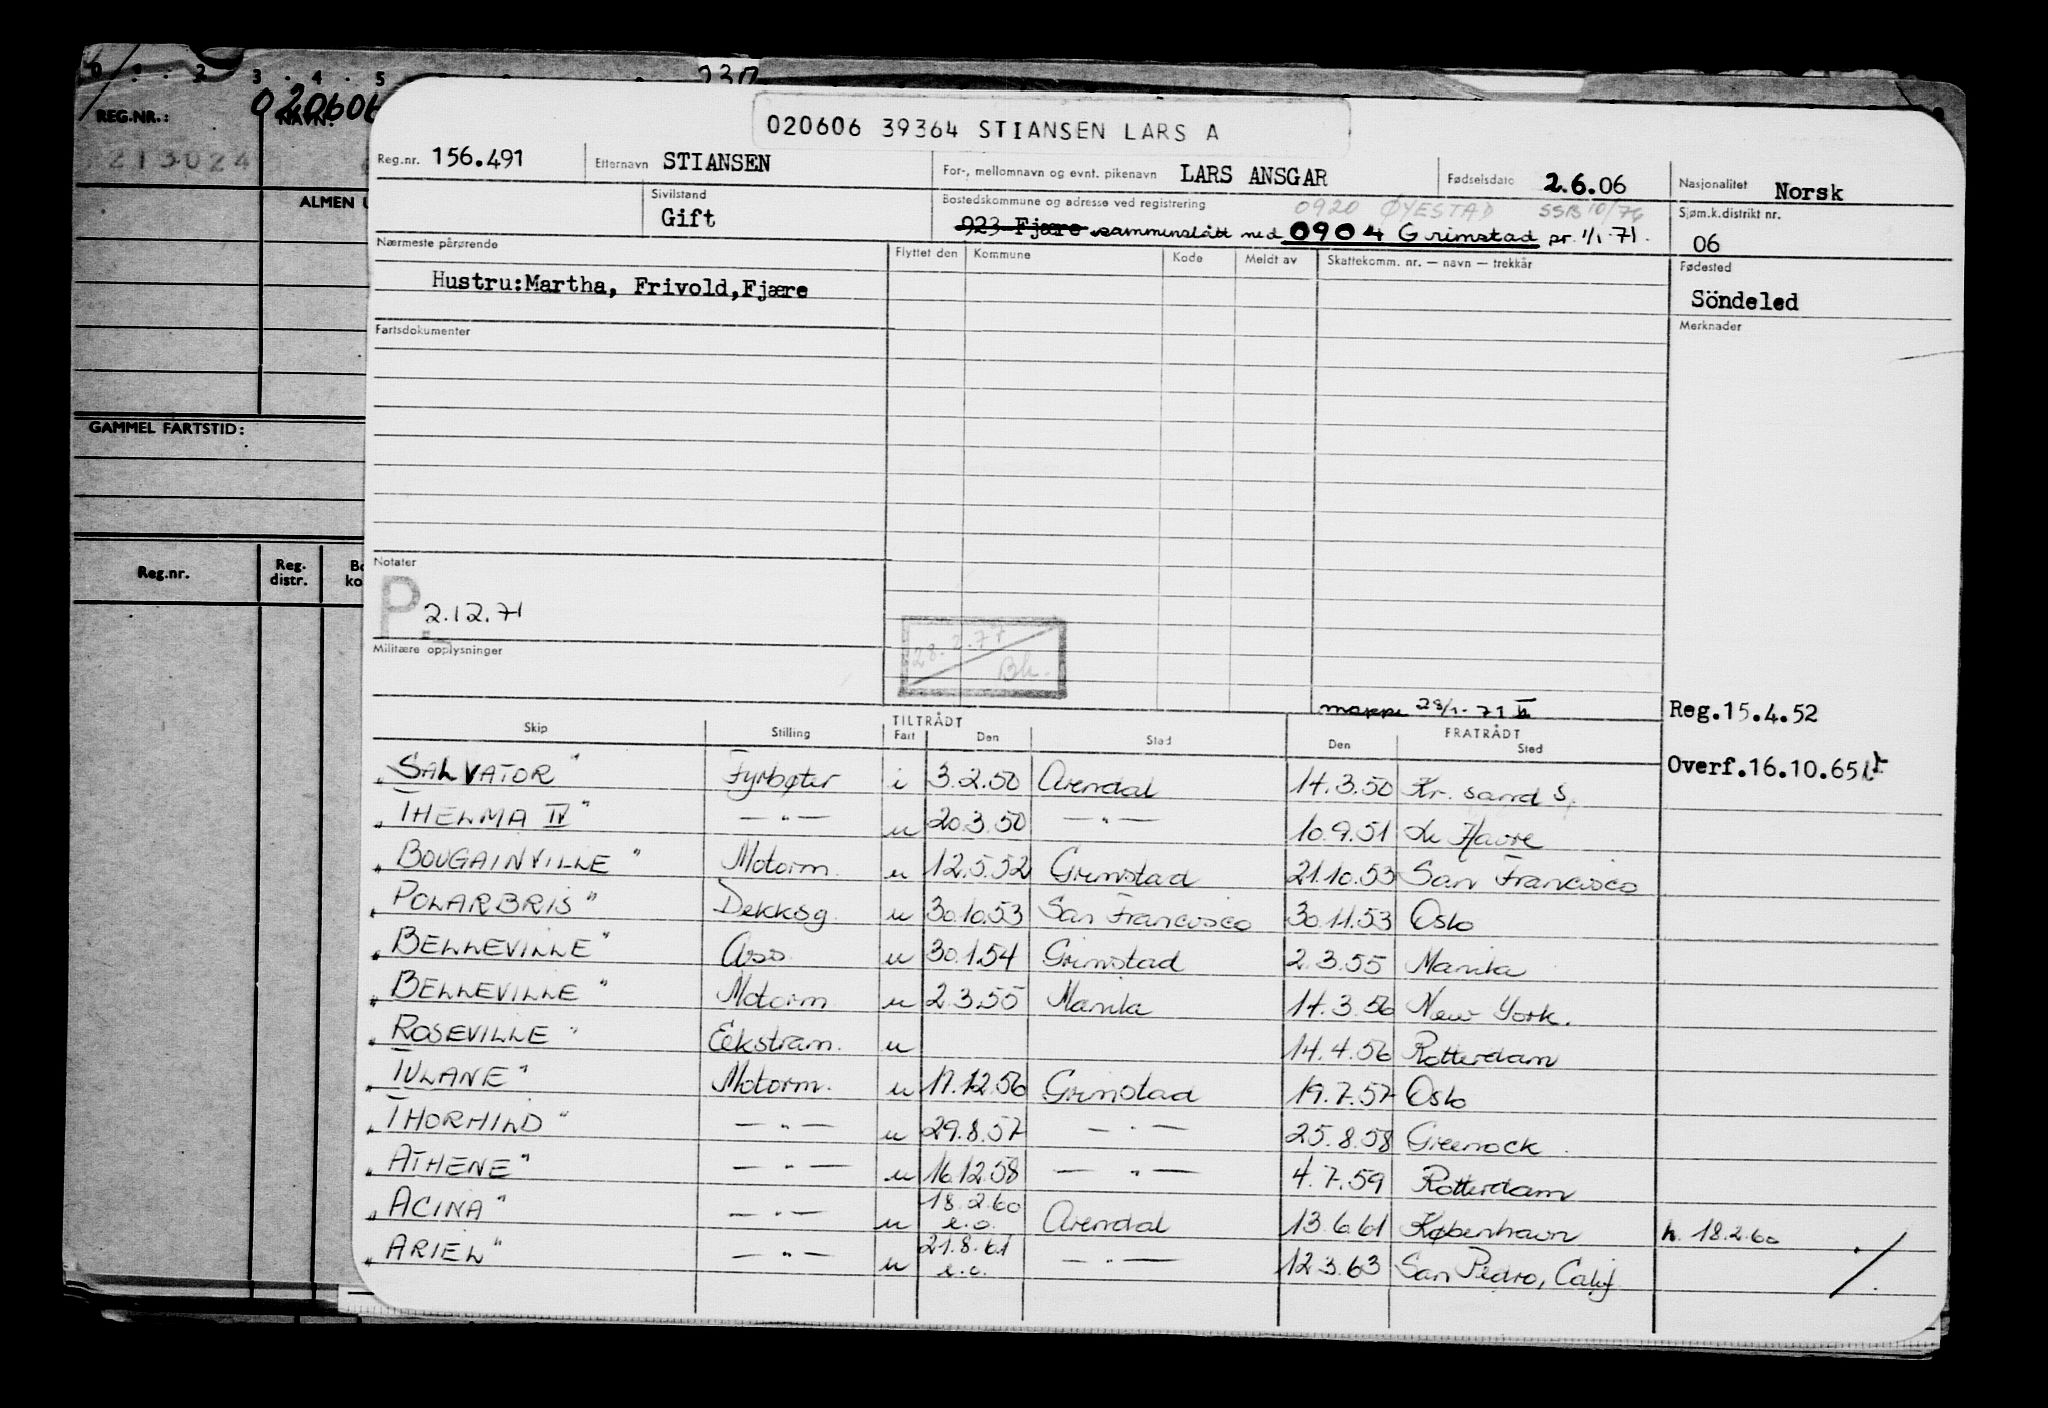 0 · 2 · 3 · 4 · 5
REG.NR.: 020606 NAVN:
213024
ALMEN U
GAMMEL FARTSTID:
Reg.nr. Reg. distr. Bo ko
020606 39364 STIANSEN LARS A
Reg.nr. 156.491 Etternavn STIANSEN For-, mellomnavn og evnt. pikenavn LARS ANSGAR Fødselsdato 2.6.06 Nasjonalitet Norsk
Sivilstand Gift
Bostedskommune og adresse ved registrering 0920 ØYESTAD SSB 10/76
923 Fjære sammenslått med 0904 Grimstad pr. 1/1-71.
Sjøm.k.distrikt nr. 06
Nærmeste pårørende
Flyttet den Kommune Kode Meldt av Skattekomm. nr. — navn — trekkår
Hustru:Martha, Frivold,Fjære
Fødested Söndeled
Fartsdokumenter
Merknader
Notater
P. 2.12.71
28.2.77 Bk.
Militære opplysninger
mappe 28/1-71
Reg.15.4.52
Overf.16.10.65
TILTRÅDT FRATRÅDT
Skip Stilling Fart Den Sted Den Sted
"SALVATOR" Fyrbøter i 3.2.50 Arendal 14.3.50 Kr. sand S.
"THELMA IV" — " — u 20.3.50 — " — 10.9.51 Le Havre
"BOUGAINVILLE" Motorm. u 12.5.52 Grimstad 21.10.53 San Francisco
"POLARBRIS" Dekksg. u 30.10.53 San Francisco 30.11.53 Oslo
"BELLEVILLE" Ass. u 30.1.54 Grimstad 2.3.55 Manila
"BELLEVILLE" Motorm. u 2.3.55 Manila 14.3.56 New York.
"ROSEVILLE" Eekstram. u 14.4.56 Rotterdam
"TULANE" Motorm. u 17.12.56 Grimstad 19.7.57 Oslo
"THORHILD" — " — u 29.8.57 — " — 25.8.58 Greenock.
"ATHENE" — " — u 16.12.58 — " — 4.7.59 Rotterdam
"ACINA" — " — u 18.2.60 e.o. Arendal 13.6.61 København h. 18.2.60
"ARIEL" — " — u 21.8.61 e.o. — " — 12.3.63 San Pedro, Calif.